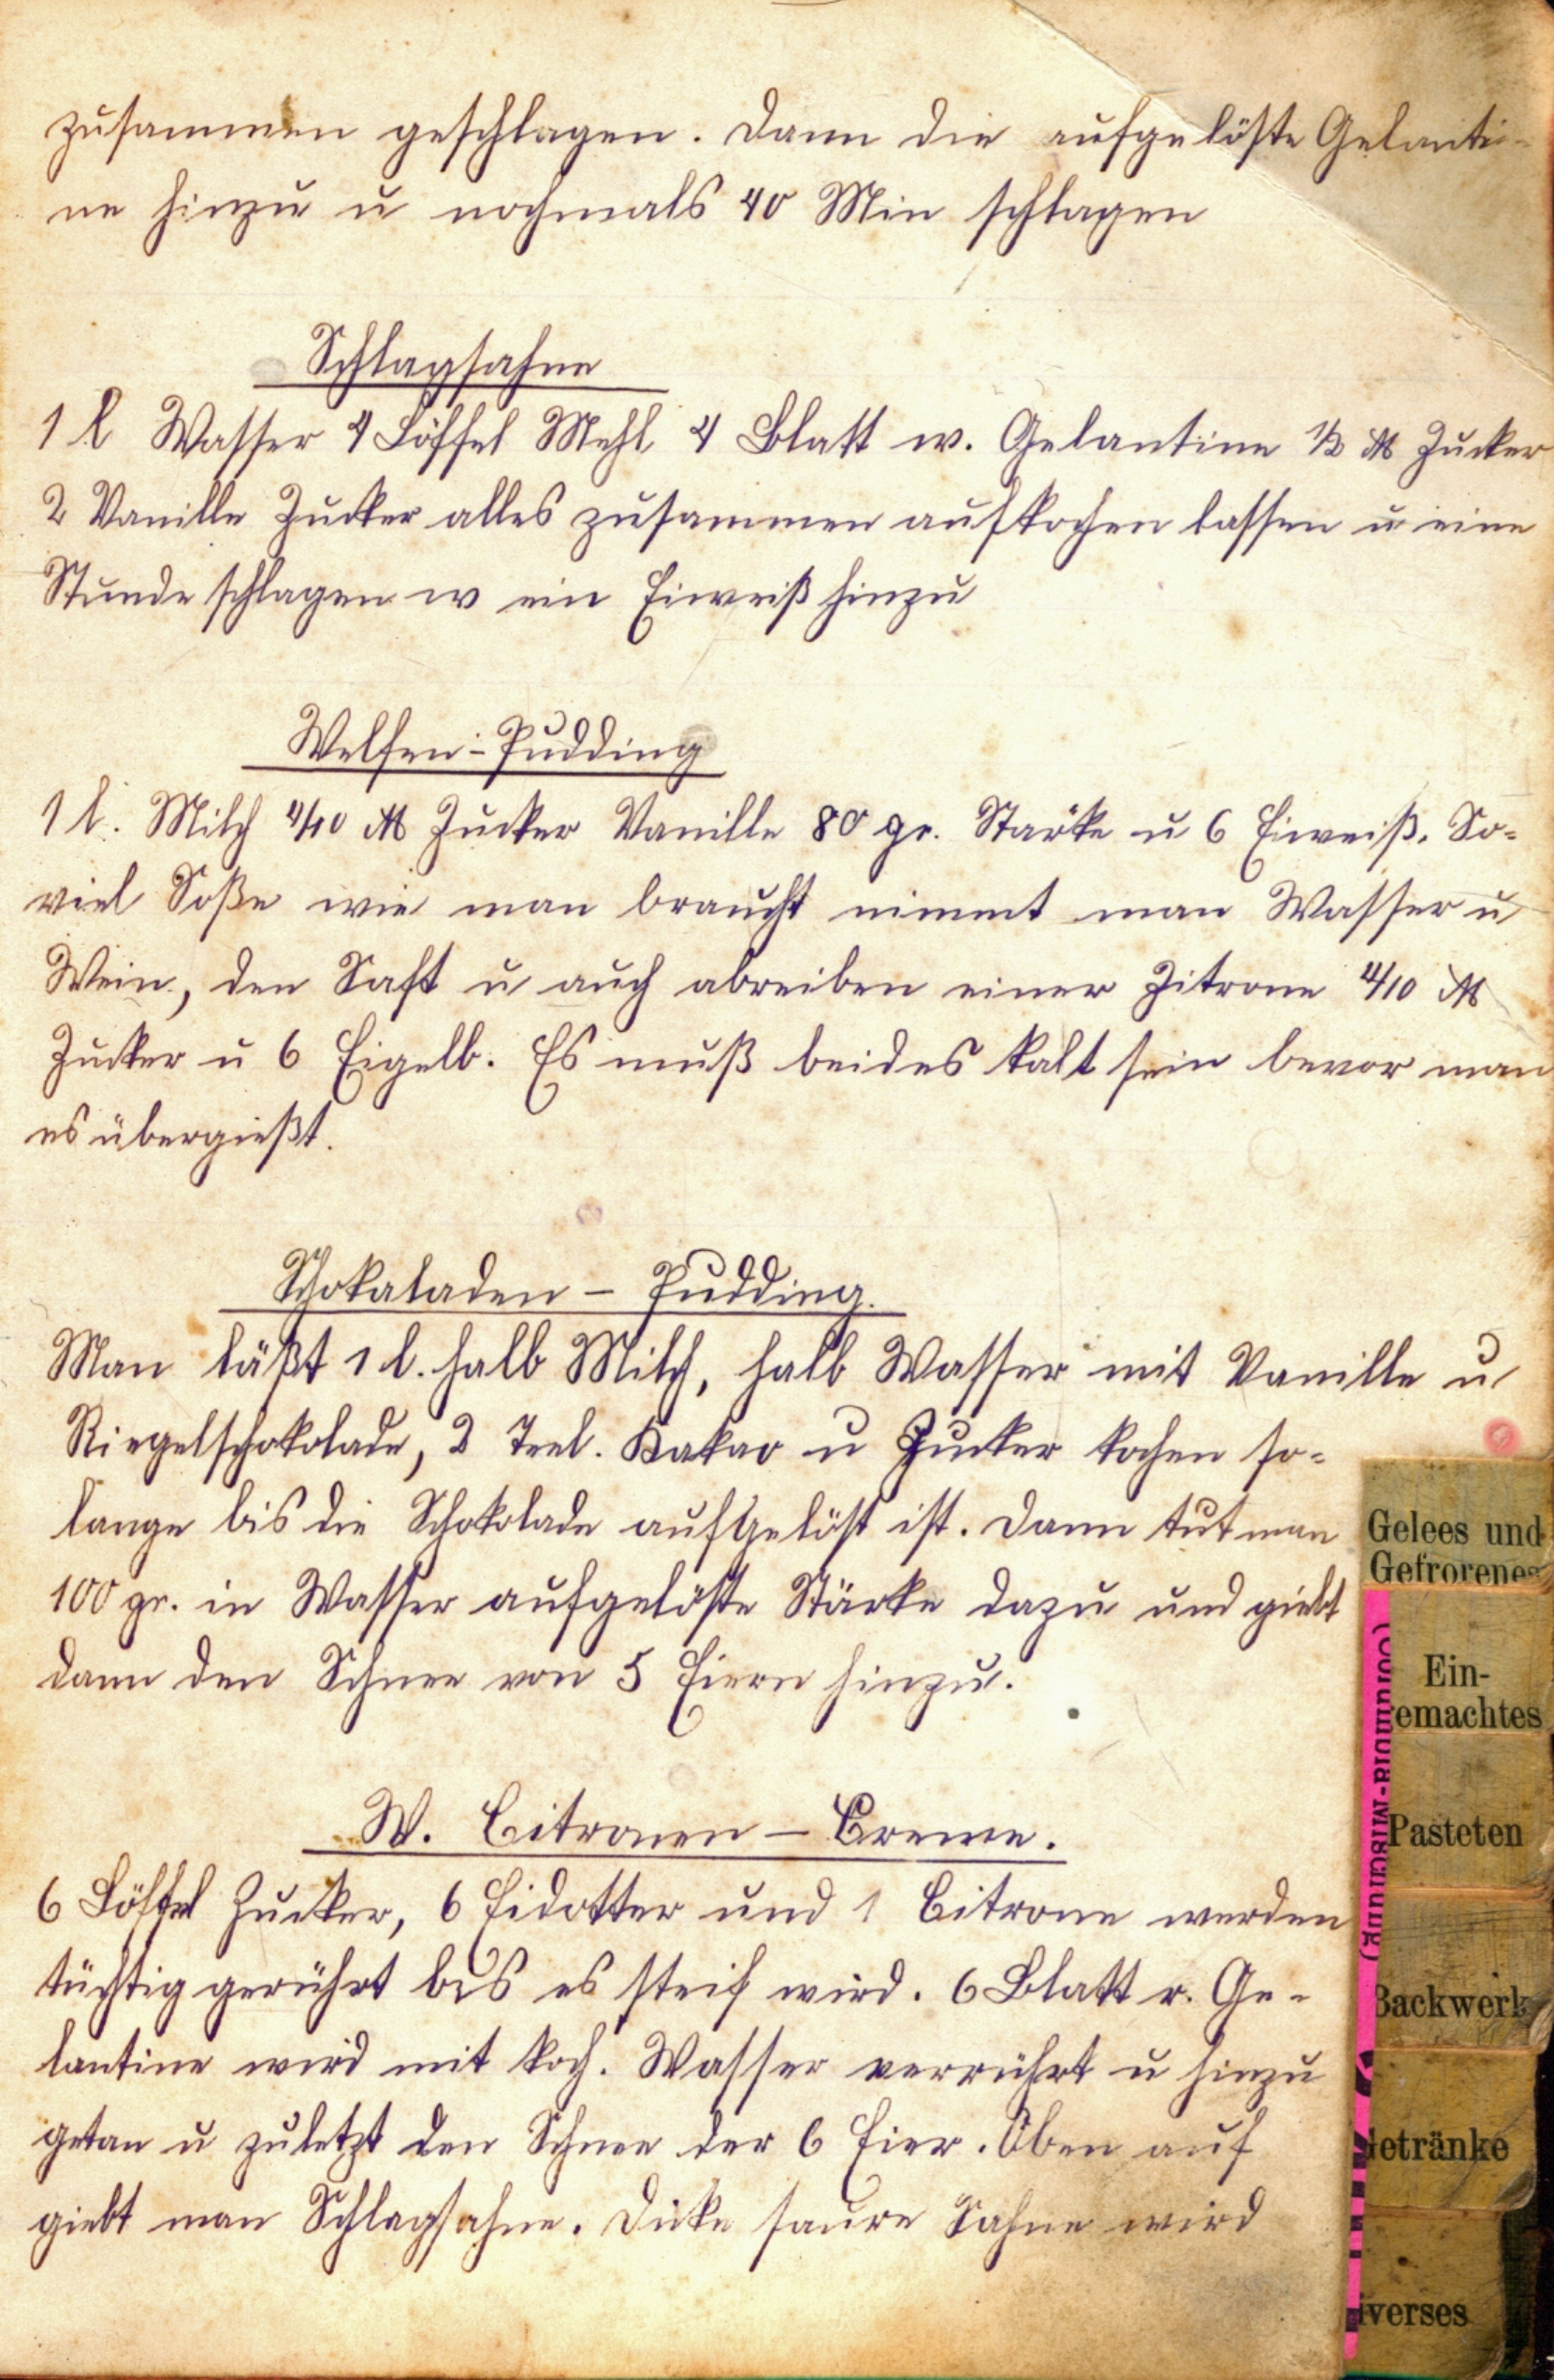 zusammen geschlagen. Dann die aufgelöste Gelanti-
ne hinzu u nochmals 40 Min schlagen
Schlagsahne
1 l Wasser 4 Löffel Mehl 4 Blatt w. Gelantine 1/2 ℔ Zucker
2 Vanille Zucker alles zusammen aufkochen lassen u eine
Stunde schlagen w ein Eiweiß hinzu
Welfen-Pudding
1 l. Milch 4/10 ℔ Zucker Vanille 80 gr. Stärke u 6 Eiweiß. So-
viel Soße wie man braucht nimmt man Wasser u
Wein, den Saft u auch abreiben einer Zitrone 4/10 ℔
Zucker u 6 Eigelb. Es muß beides kalt sein bevor man
es übergießt.
Schokaladen - Pudding.
Man läßt 1 l. halb Milch, halb Wasser mit Vanille u
Riegelschokolade, 2 Teel. Kakao u Zucker kochen so-
lange bis die Schokolade aufgelöst ist. Dann tut man
100 gr. in Wasser aufgelöste Stärke dazu und giebt
dann den Schnee von 5 Eiern hinzu.
W. Citronen - Creme.
6 Löffel Zucker, 6 Eidotter und 1 Citrone werden
tüchtig gerührt bis es steif wird. 6 Blatt r. Ge-
lantine wird mit koch. Wasser verrührt u hinzu
getan u zuletzt den Schnee der 6 Eier. Oben auf
giebt man Schlagsahne. Dicke saure Sahne wird
Gelees und
Gefrorenes
Ein-
gemachtes
Pasteten
Backwerk
Getränke
iverses